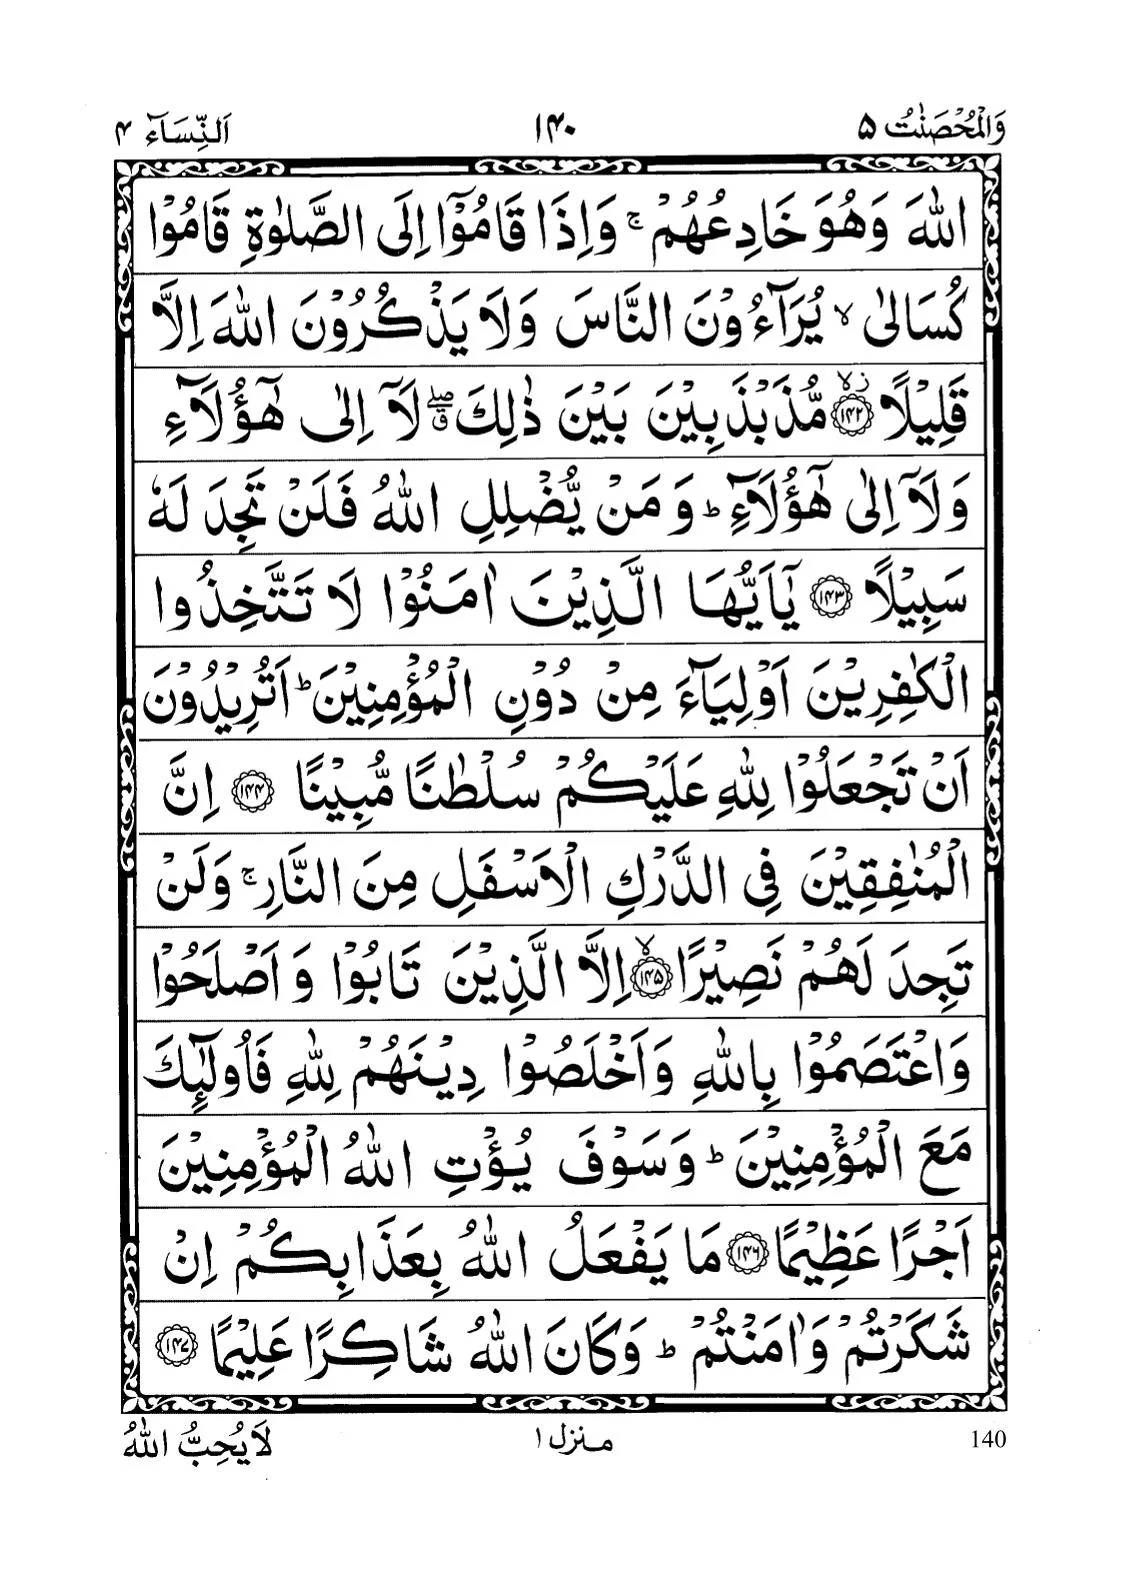 وَالْمُحْصَنٰتُ ۵ ۱۴۰ اَلنِّسَآء ۴
اللّٰهَ وَهُوَ خَادِعُهُمْ ۚ وَاِذَا قَامُوْۤا اِلَى الصَّلٰوةِ قَامُوْا
كُسَالٰى ۙ يُرَآءُوْنَ النَّاسَ وَلَا يَذْكُرُوْنَ اللّٰهَ اِلَّا
قَلِيْلًا ۙ۬ ﴿۱۴۲﴾ مُّذَبْذَبِيْنَ بَيْنَ ذٰلِكَ ۖۗ لَاۤ اِلٰى هٰٓؤُلَآءِ
وَلَاۤ اِلٰى هٰٓؤُلَآءِ ؕ وَمَنْ يُّضْلِلِ اللّٰهُ فَلَنْ تَجِدَ لَهٗ
سَبِيْلًا ﴿۱۴۳﴾ يٰۤاَيُّهَا الَّذِيْنَ اٰمَنُوْا لَا تَتَّخِذُوا
الْكٰفِرِيْنَ اَوْلِيَآءَ مِنْ دُوْنِ الْمُؤْمِنِيْنَ ؕ اَتُرِيْدُوْنَ
اَنْ تَجْعَلُوْا لِلّٰهِ عَلَيْكُمْ سُلْطٰنًا مُّبِيْنًا ﴿۱۴۴﴾ اِنَّ
الْمُنٰفِقِيْنَ فِى الدَّرْكِ الْاَسْفَلِ مِنَ النَّارِ ۚ وَلَنْ
تَجِدَ لَهُمْ نَصِيْرًا ۙ ﴿۱۴۵﴾ اِلَّا الَّذِيْنَ تَابُوْا وَاَصْلَحُوْا
وَاعْتَصَمُوْا بِاللّٰهِ وَاَخْلَصُوْا دِيْنَهُمْ لِلّٰهِ فَاُولٰٓئِكَ
مَعَ الْمُؤْمِنِيْنَ ؕ وَسَوْفَ يُؤْتِ اللّٰهُ الْمُؤْمِنِيْنَ
اَجْرًا عَظِيْمًا ﴿۱۴۶﴾ مَا يَفْعَلُ اللّٰهُ بِعَذَابِكُمْ اِنْ
شَكَرْتُمْ وَاٰمَنْتُمْ ؕ وَكَانَ اللّٰهُ شَاكِرًا عَلِيْمًا ﴿۱۴۷﴾
140 منزل ۱ لَا يُحِبُّ اللّٰهُ